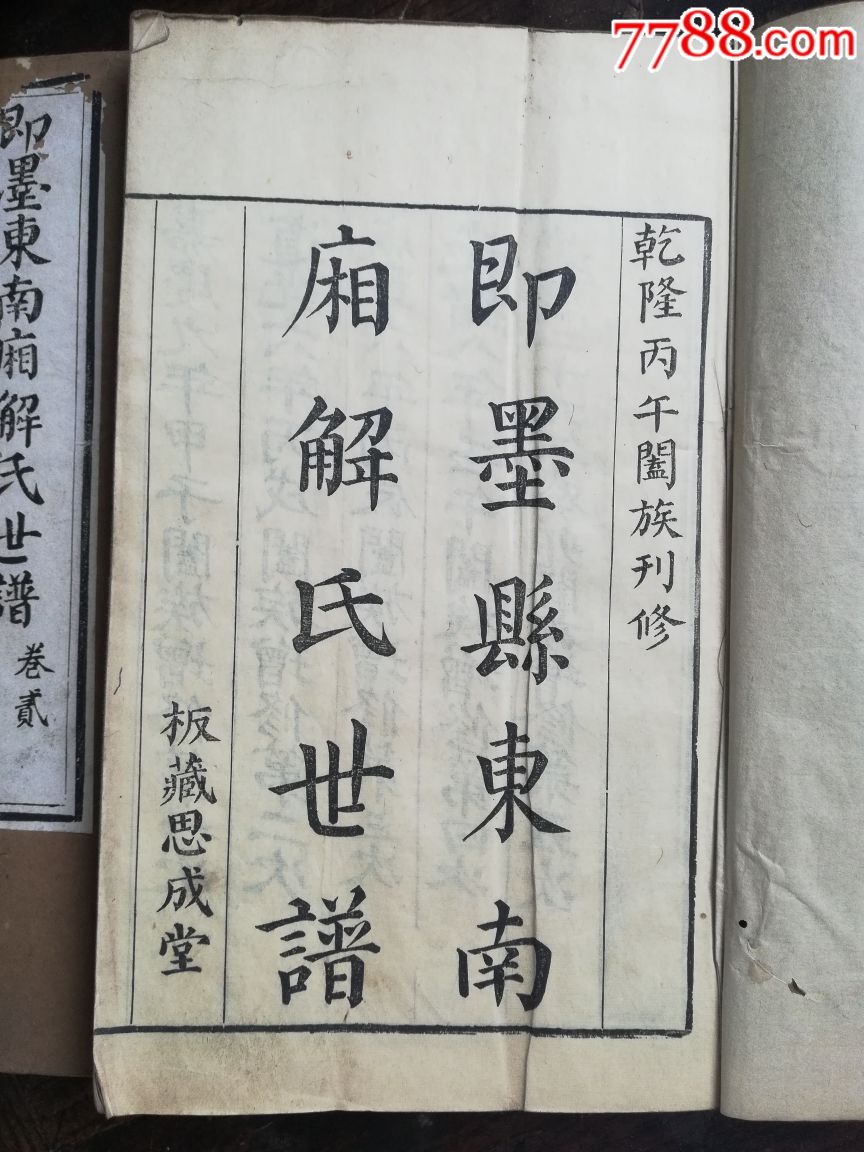 7788.com
乾隆丙午闔族刊修
即墨縣東南
廂解氏世譜
板藏思成堂
即墨東南廂解氏世譜
卷貳